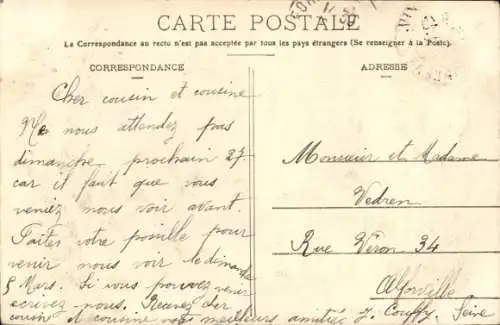 CARTE POSTALE
La Correspondance au recto n'est pas acceptée par tous les pays étrangers (Se renseigner à la Poste).
CORRESPONDANCE
Cher cousin et cousine
Ne nous attendez pas
dimanche prochain 27
car il faut que vous
veniez nous voir avant.
Faites votre possible pour
venir nous voir le dimanche
5 Mars. Si vous pouvez venir
ecrivez nous. Recevez cher
cousin et cousine nos meilleurs amitiés J. Couffy.
ADRESSE
Monsieur et Madame
Vedren
Rue Véron 34
Alforville
Seine